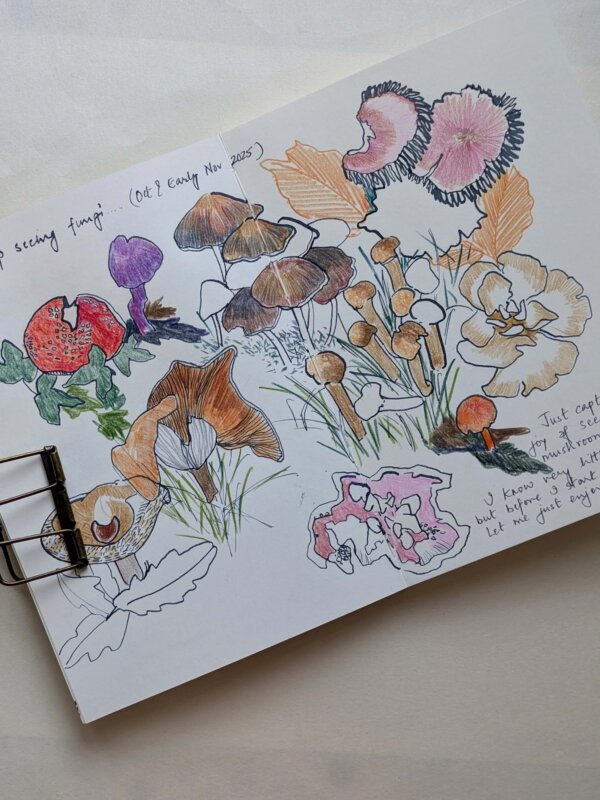 seeing fungi.... (Oct & Early Nov 2025)
Just capt
joy of see
mushroom
I know very litt
but before I start
Let me just enjoy